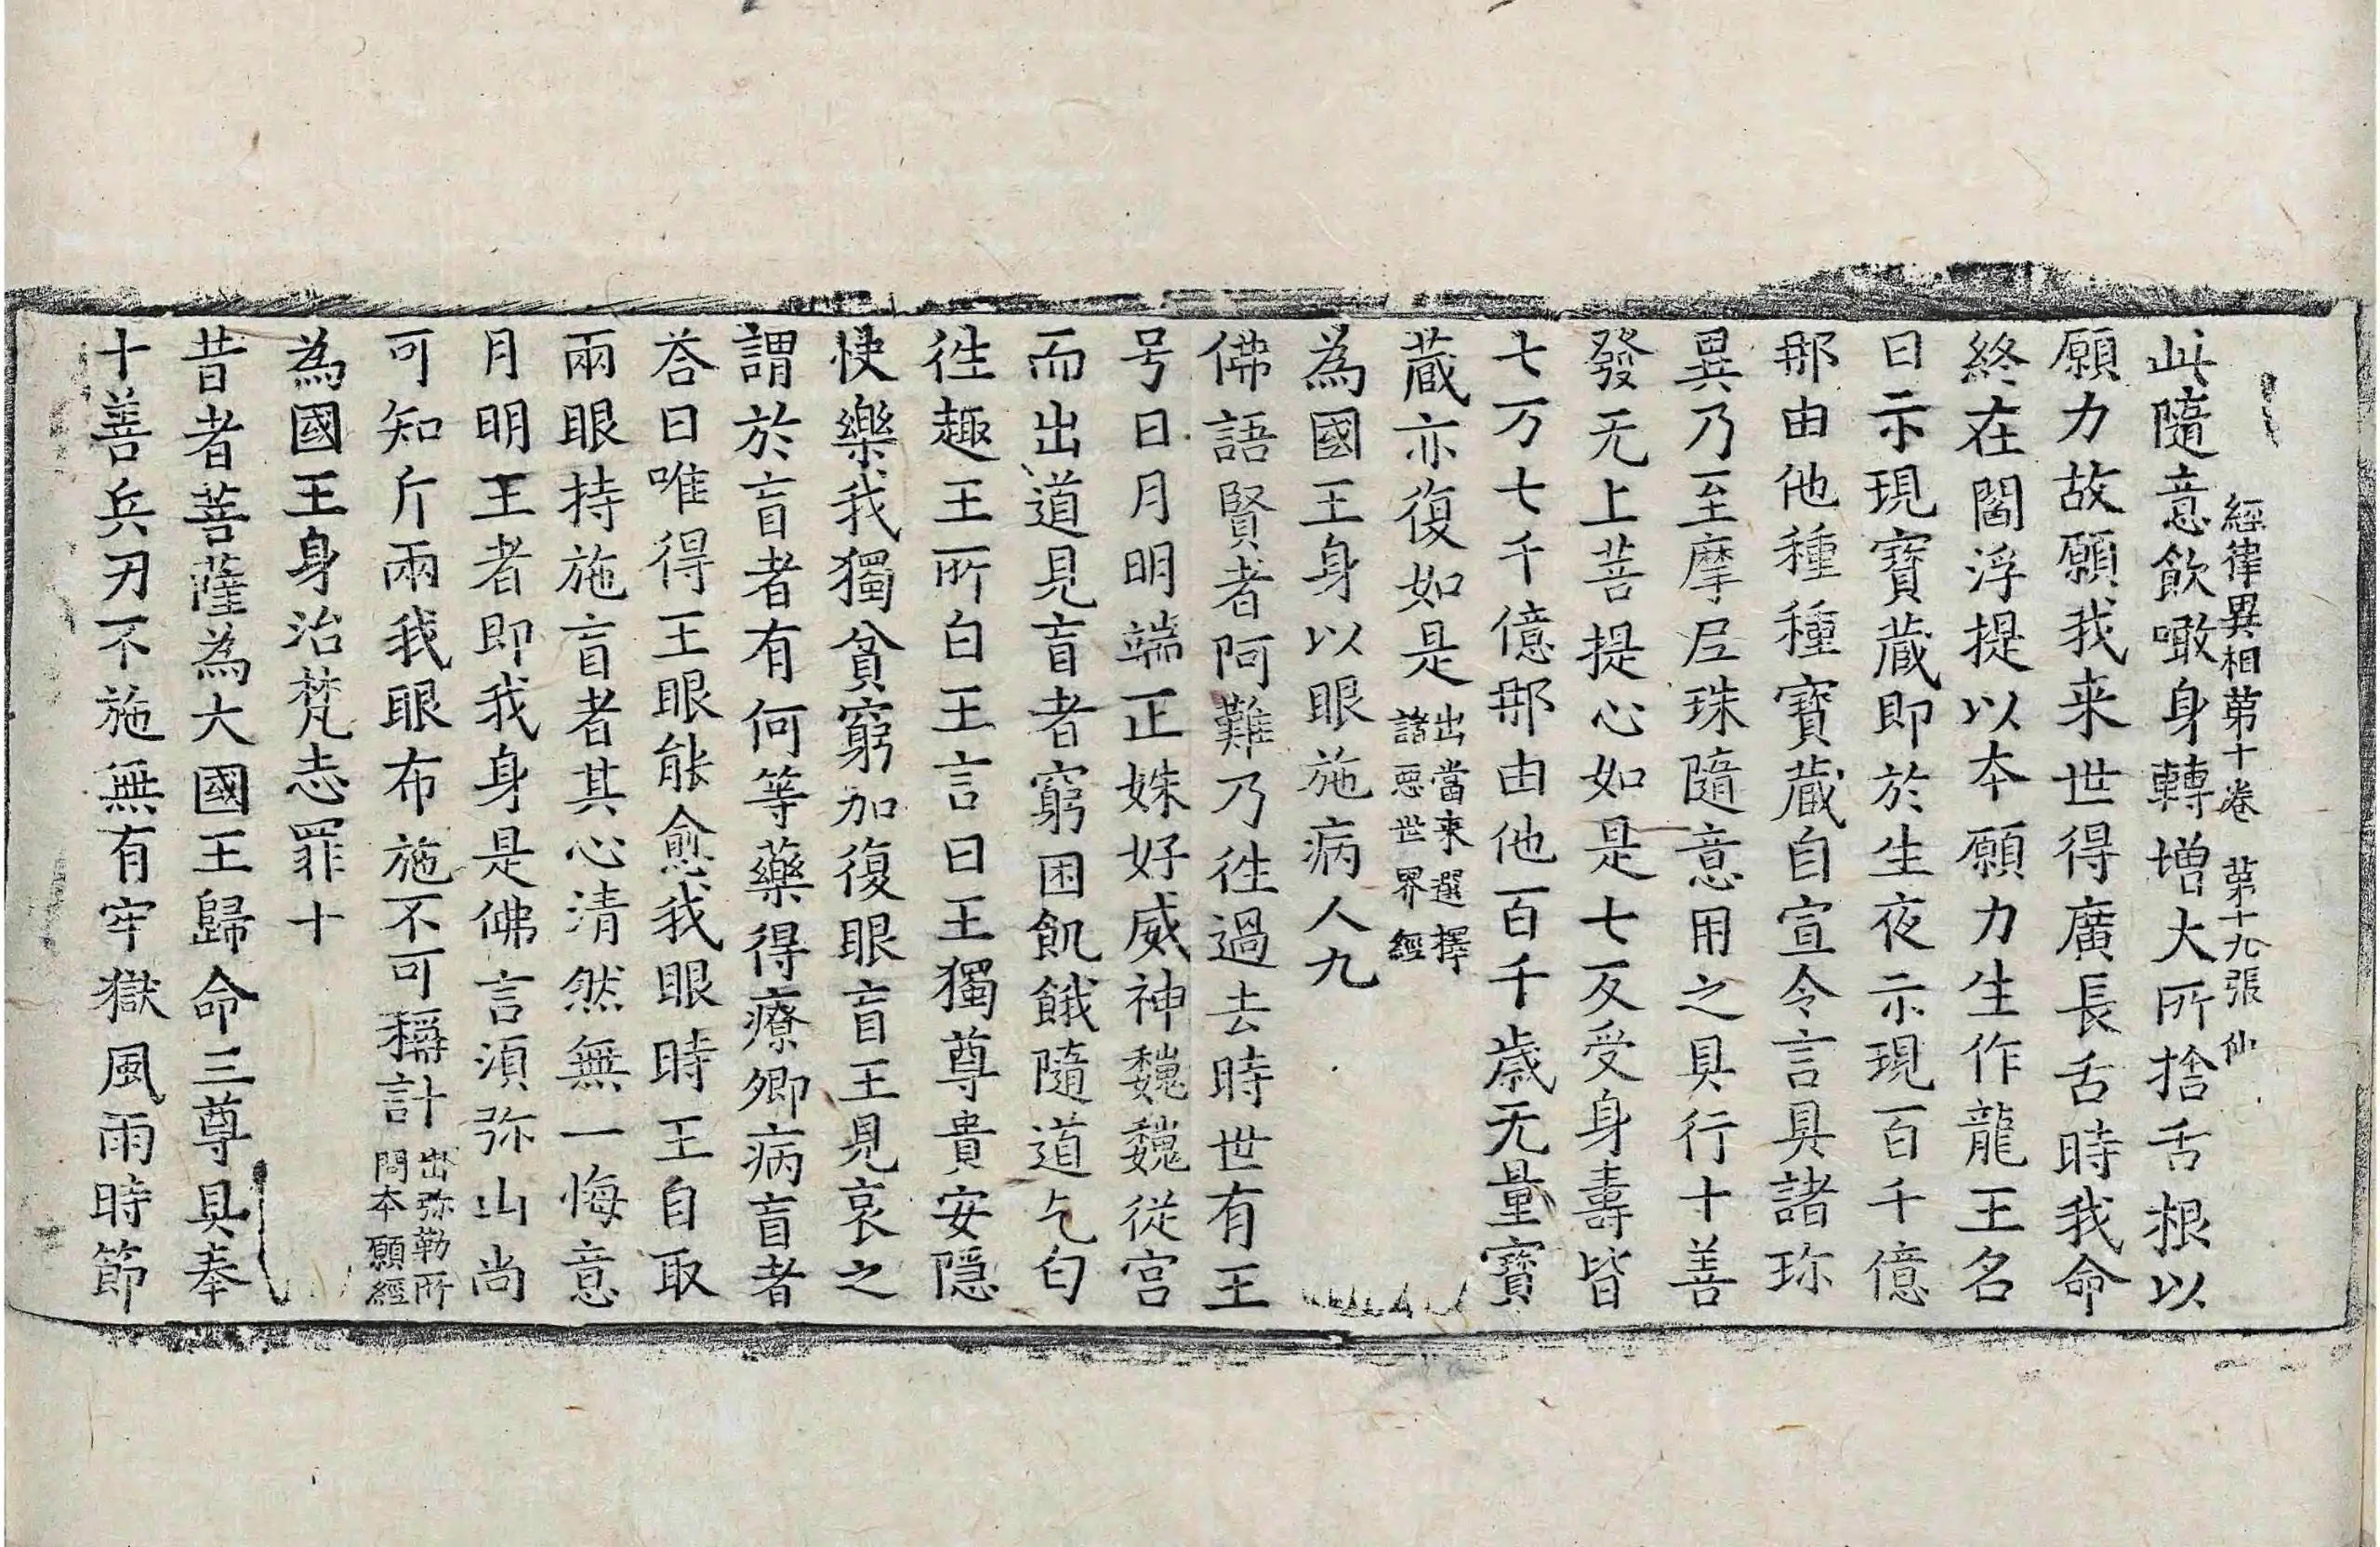 經律異相第十卷 第十九張 仙
此隨意飲噉身轉增大所捨舌根以
願力故願我来世得廣長舌時我命
終在閻浮提以本願力生作龍王名
曰示現寶蔵即於生夜示現百千億
那由他種種寶蔵自宣令言具諸珎
異乃至摩尼珠隨意用之具行十善
發无上菩提心如是七反受身壽皆
七万七千億那由他百千歲无量寶
蔵亦復如是出當來選擇諸惡世界經
為國王身以眼施病人九
佛語賢者阿難乃徃過去時世有王
号日月明端正姝好威神巍巍從宮
而出道見盲者窮困飢餓隨道乞匃
徃趣王所白王言曰王獨尊貴安隱
快樂我獨貧窮加復眼盲王見哀之
謂於盲者有何等藥得療卿病盲者
荅曰唯得王眼能愈我眼時王自取
兩眼持施盲者其心清然無一悔意
月明王者即我身是佛言湏弥山尚
可知斤兩我眼布施不可稱計出弥勒所問本願經
為國王身治梵志罪十
昔者菩薩為大國王歸命三尊具奉
十善兵刃不施無有牢獄風雨時節